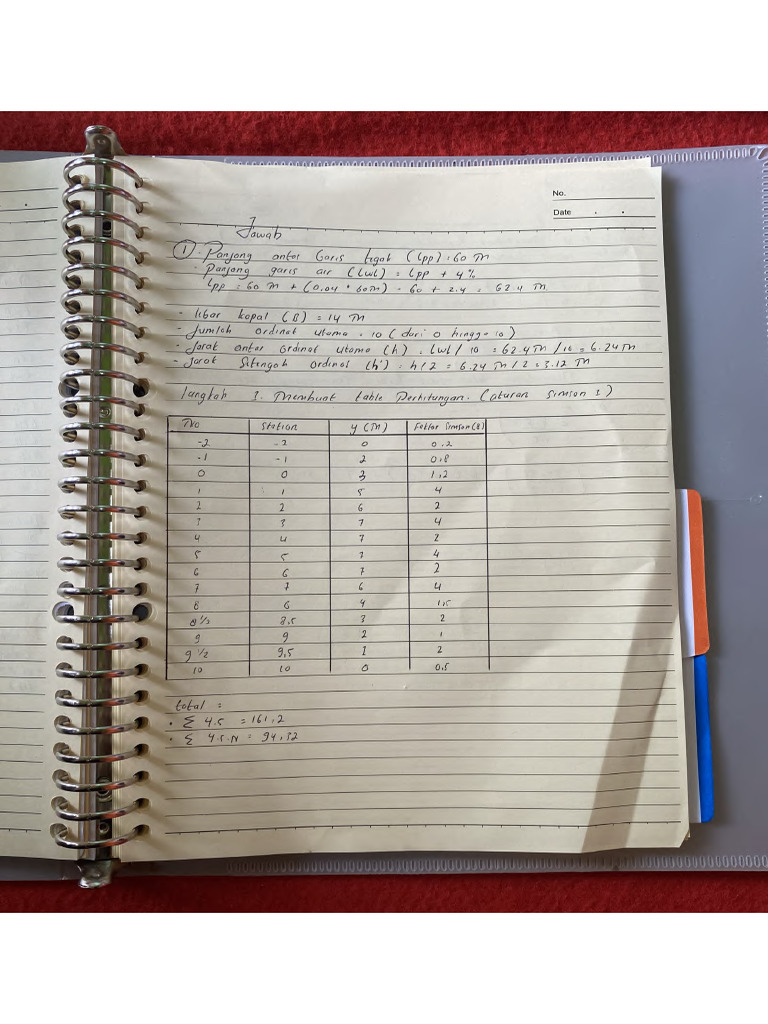 No.
Date
Jawab
① - Panjang antar Garis tegak (Lpp) : 60 m
- Panjang garis air (Lwl) = Lpp + 4%
Lpp = 60 m + (0.04 * 60m) = 60 + 2.4 = 62.4 m.
- Libar kapal (B) = 14 m
- Jumlah ordinat utama = 10 (dari 0 hingga 10)
- Jarak antar Ordinal utama (h) = Lwl / 10 = 62.4 m / 10 = 6.24 m
- Jarak Setengah Ordinal (h') = h/2 = 6.24 m / 2 = 3.12 m
Langkah 1. Membuat table Perhitungan. (aturan Simson 1)
No Station y (m) Faktor Simson (B)
-2 -2 0 0.2
-1 -1 2 0.8
0 0 3 1,2
1 1 5 4
2 2 6 2
3 3 7 4
4 4 7 2
5 5 7 4
6 6 7 2
7 7 6 4
8 8 4 1,5
8 1/2 8.5 3 2
9 9 2 1
9 1/2 9,5 1 2
10 10 0 0.5
total :
• Σ 4.5 = 161,2
• Σ 4.5.N = 94,32